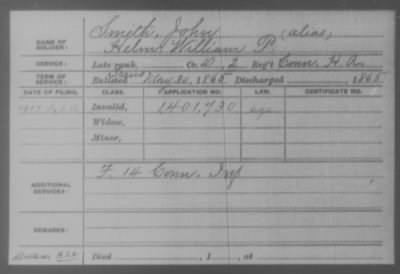 Smith, John (alias)
NAME OF SOLDIER: Helm, William P.
SERVICE: Late rank, Co. D, 2 Reg't Conn. H. A.
TERM OF SERVICE: Enlisted May 30, 1865 Discharged , 1865
DATE OF FILING. CLASS. APPLICATION NO. LAW. CERTIFICATE NO.
Invalid, 1401,730
Widow,
Minor,
ADDITIONAL SERVICES: F. 14 Conn. Inf
REMARKS:
Died , 1 , at